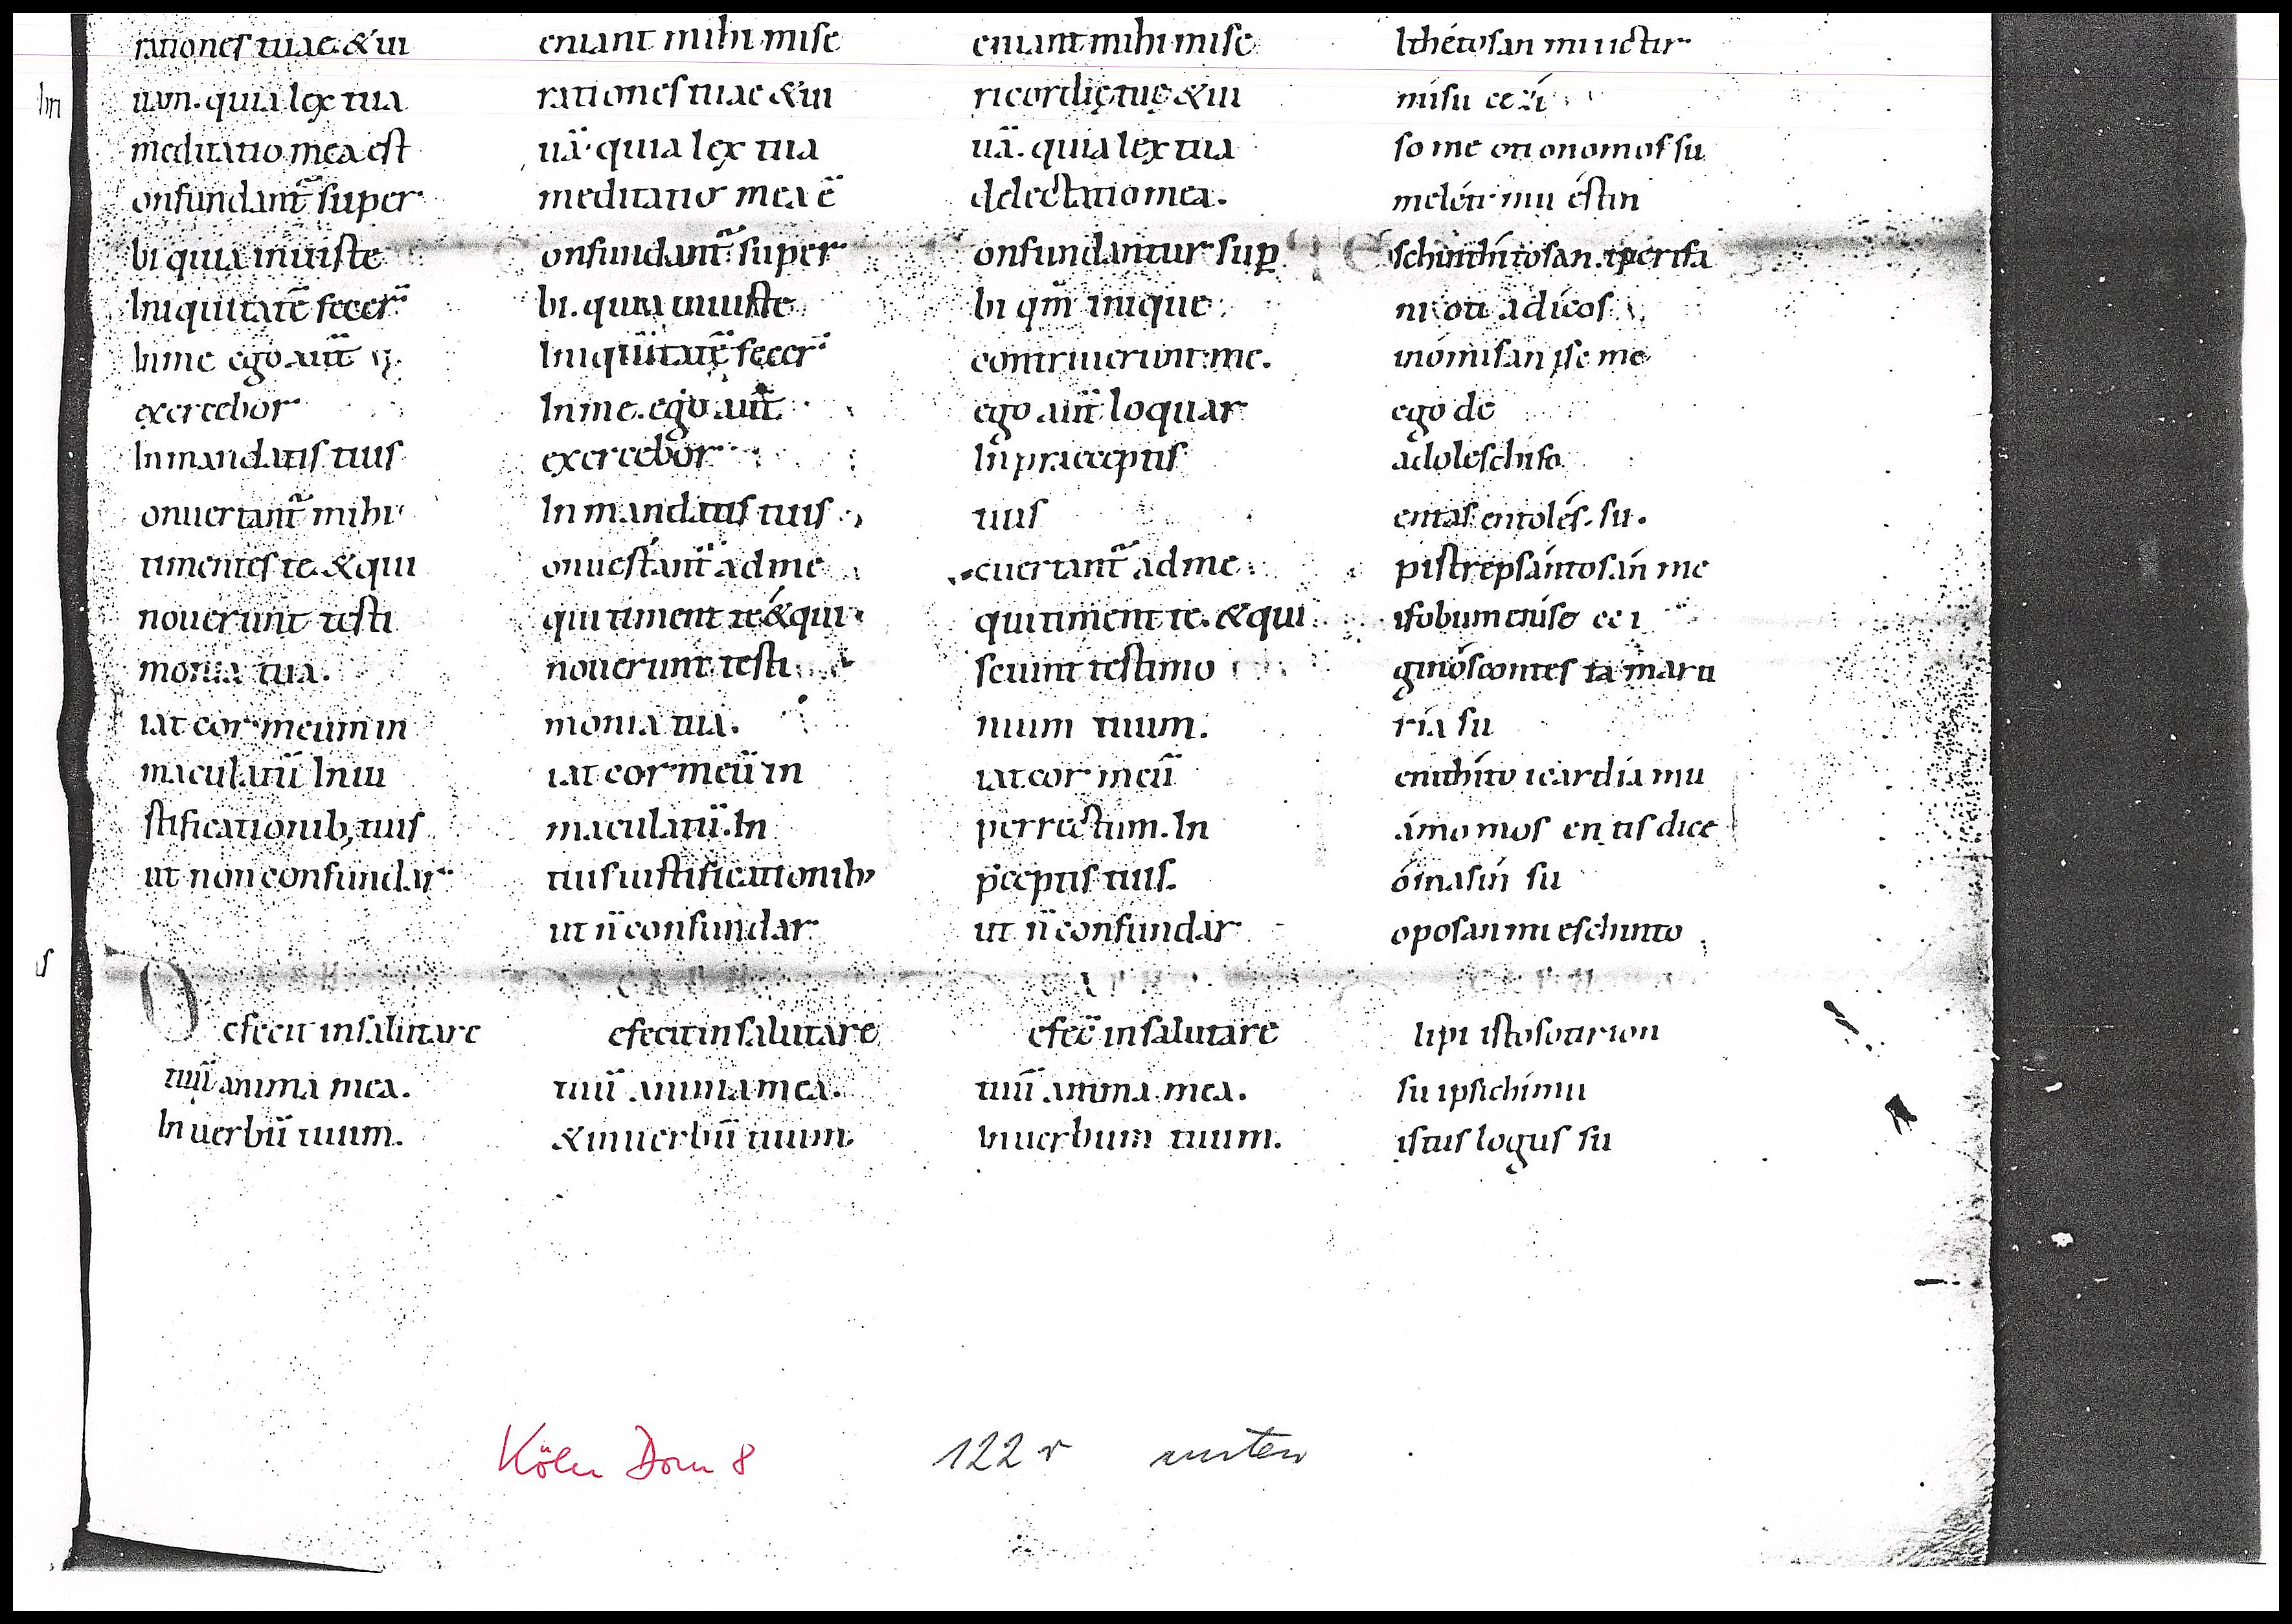 rationes tuae & ui
uam. quia lex tua
meditatio mea est
onfundant̃ super
bi quia iniuste
Iniquitatẽ fecer̃
In me ego aut̃
exercebor
In mandatis tuis
onuertant̃ mihi
timentes te & qui
nouerunt testi
monia tua.
iat cor meum in
maculatũ In iu
stificationib; tuis
ut non confundar
D efecit in salutare
tuũ anima mea.
In uerbũ tuum.
eniant mihi mise
rationes tuae & ui
uã. quia lex tua
meditatio mea ẽ
onfundant̃ super
bi. quia iniuste
Iniquitatẽ fecer̃
In me. ego aut̃
exercebor
In mandatis tuis
onuestant̃ ad me
qui timent te & qui
nouerunt testi
monia tua.
iat cor meũ in
maculatũ. In
tuis iustificationib;
ut ñ confundar
efecit in salutare
tuũ anima mea.
& in uerbũ tuum
eniant mihi mise
ricordię tuę & ui
uã. quia lex tua
delectatio mea.
onfundantur sup
bi qm̃ inique
contriuerunt me.
ego aut̃ loquar
In praeceptis
tuis
euertant̃ ad me
qui timent te. & qui
sciunt testimo
nium tuum.
iat cor meũ
perrectum. In
p̃ceptis tuis.
ut ñ confundar
efec̃ in salutare
tuũ anima mea.
In uerbum tuum.
lthétosan mi ictir
misu ce zí
so me oti onomos su
meléti mu éstin
Eschinthítosan. yperifa
ni oti adícos
inómisan ise me
ego de
adoleschiso
entas entolés. su.
pistrepsántosán me
ifobumenise ce i
ginóscontes ta marti
ría su
enithíto icardía mu
ámomos en tis dice
ómasín su
oposan mi eschinto
lipi istosotirion
su ipsichimu
istus logus su
Köln Dom 8 122 r unten